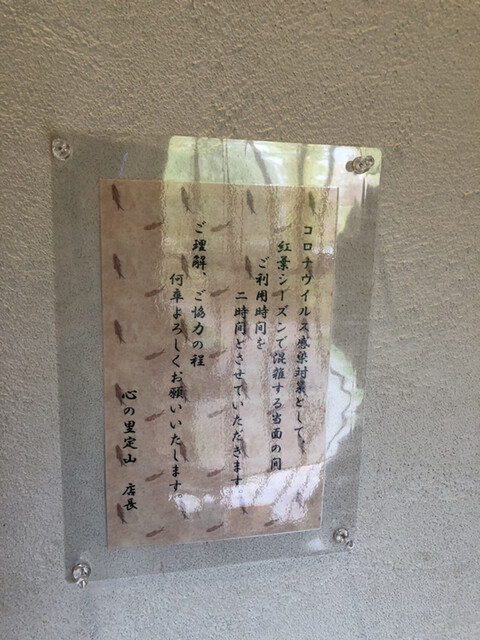 コロナウイルス感染対策として、
紅葉シーズンで混雑する当面の間
ご利用時間を
二時間とさせていただきます。
ご理解、ご協力の程
何卒よろしくお願いいたします。
心の里定山 店長